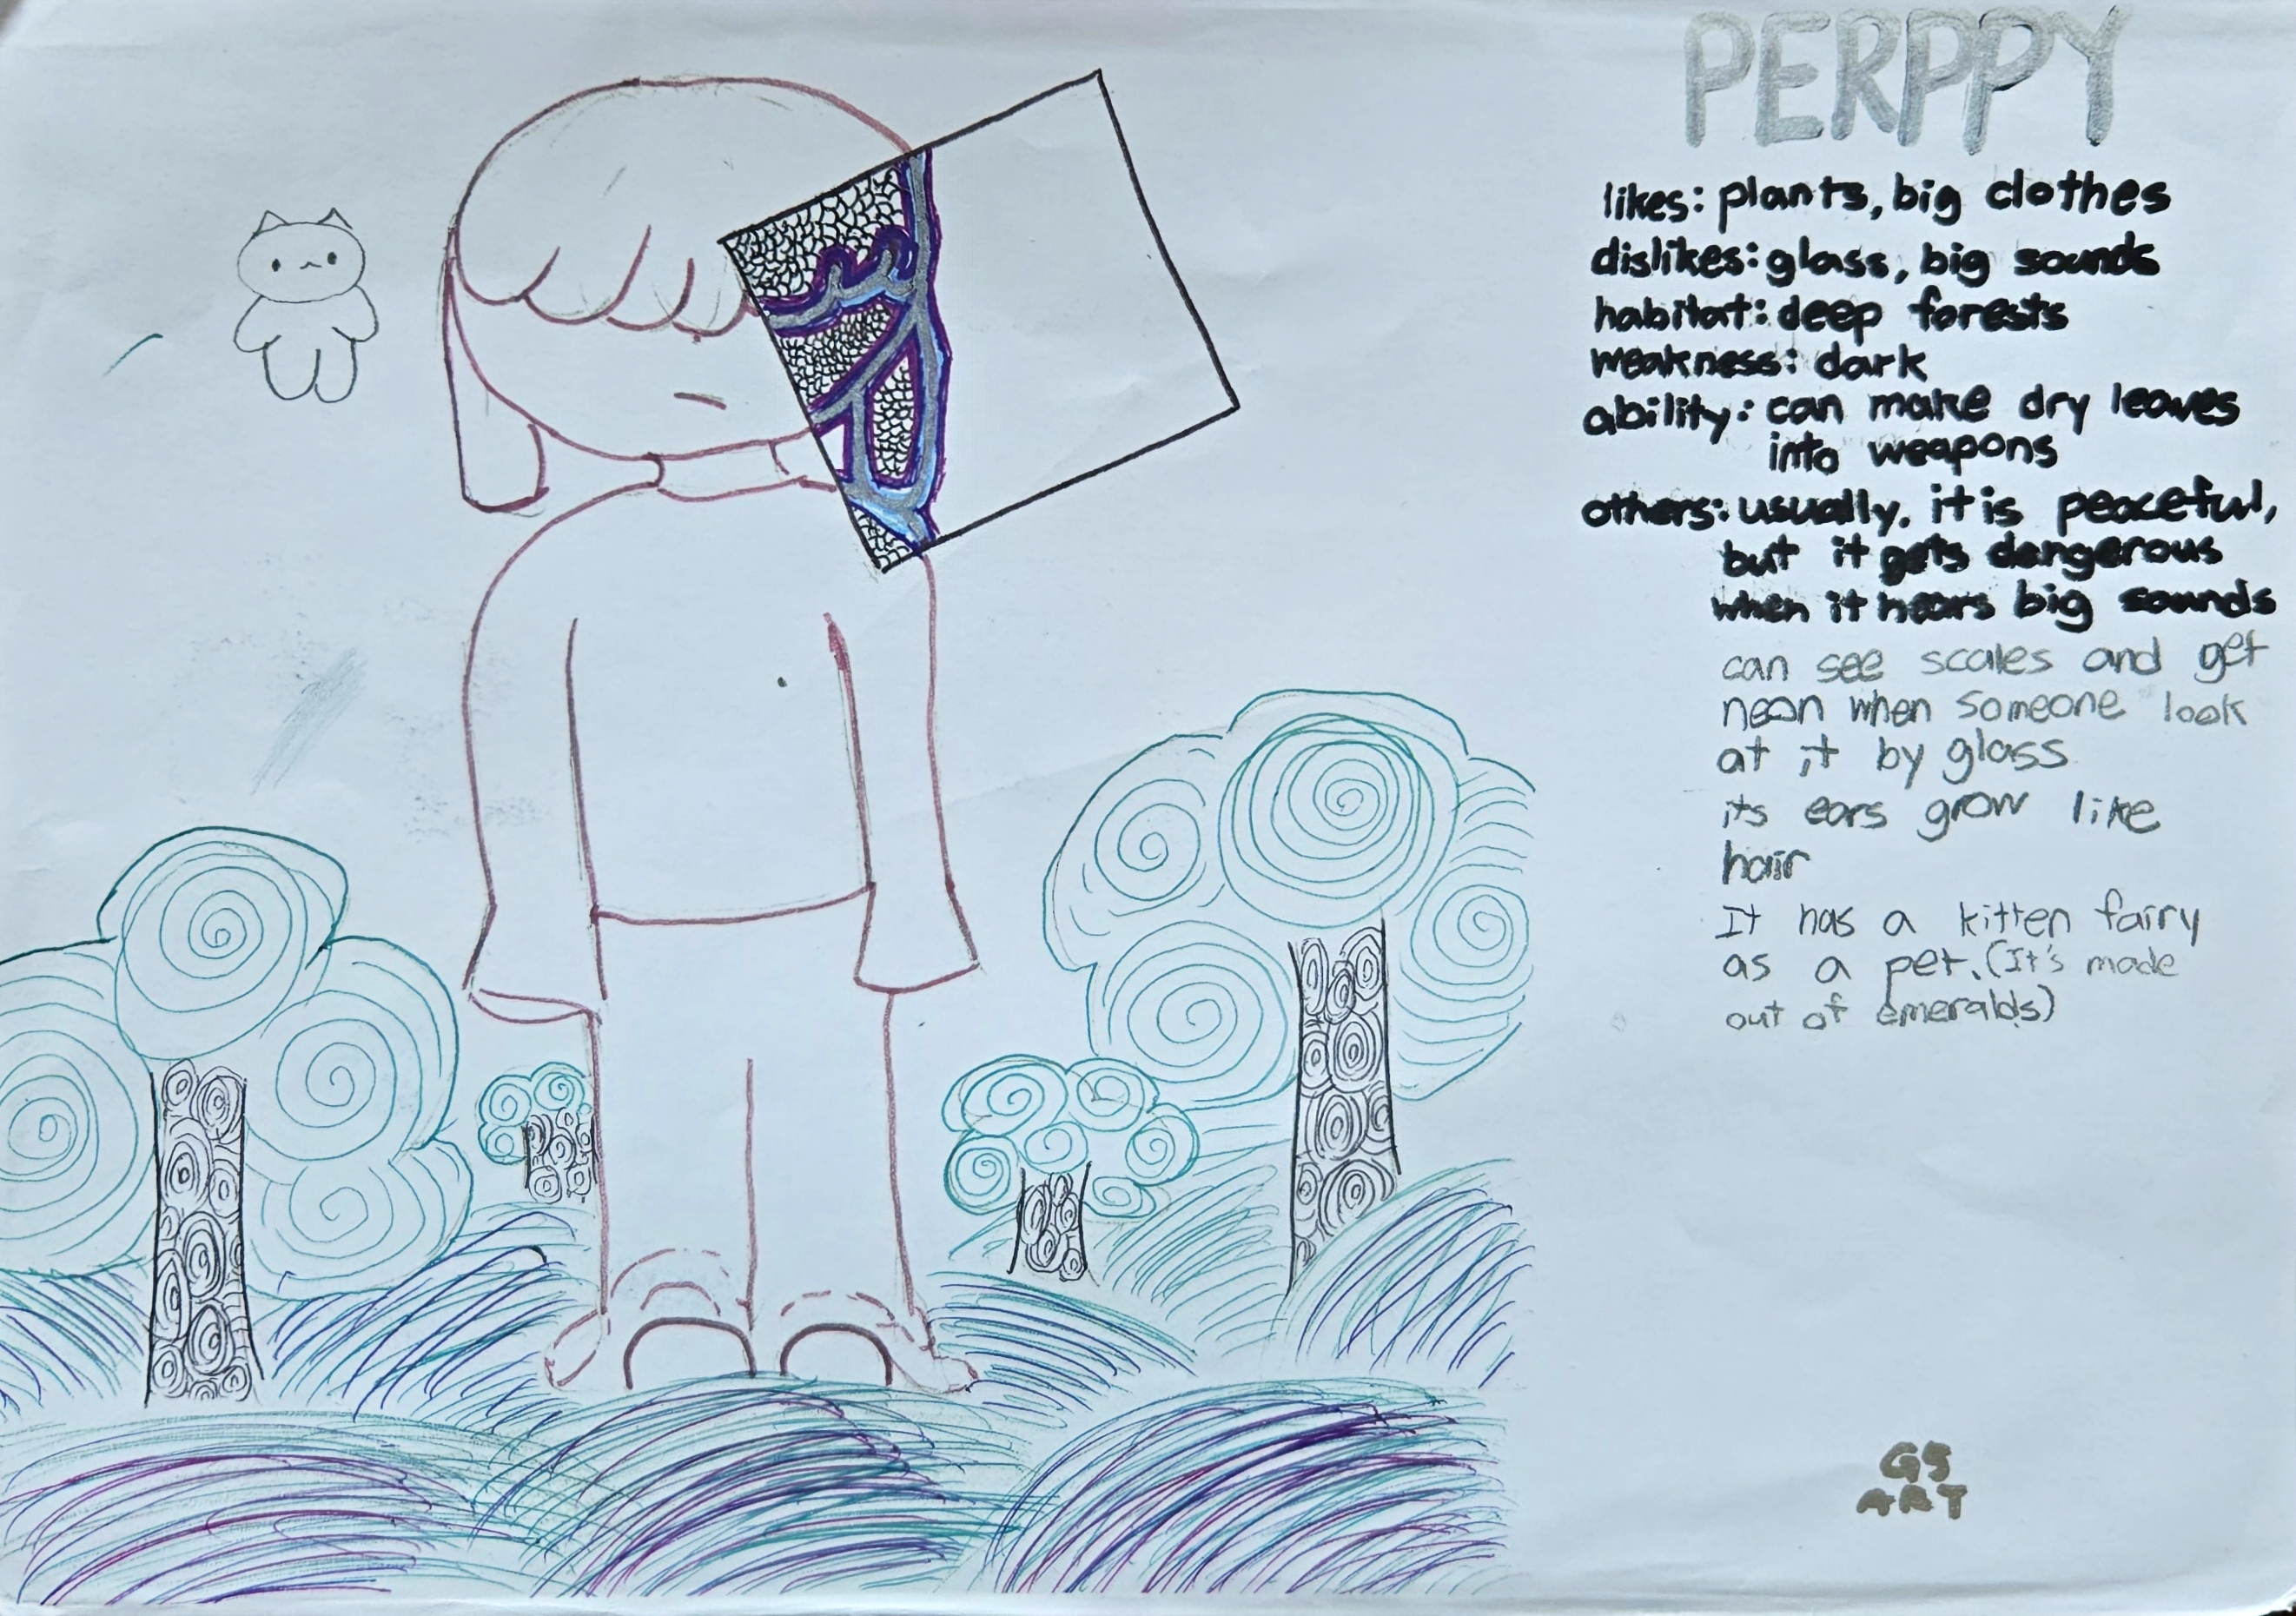 PERPPY
likes: plants, big clothes
dislikes: glass, big sounds
habitat: deep forests
weakness: dark
ability: can make dry leaves
into weapons
others: usually, it is peaceful,
but it gets dangerous
when it hears big sounds
can see scales and get
neon when someone look
at it by glass
its ears grow like
hair
It has a kitten fairy
as a pet. (It's made
out of emeralds)
GS
ART